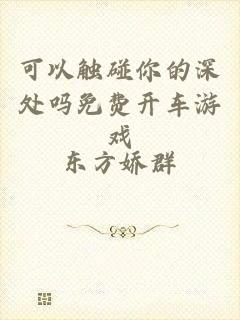 可以触碰你的深
处吗免费开车游
戏
东方娇群